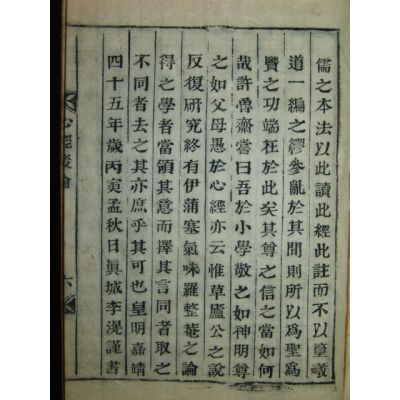 儒之本法以此讀此經此註而不以篁墩
道一編之繆參亂於其間則所以爲聖爲
賢之功端在於此矣其尊之信之當如何
哉許魯齋嘗曰吾於小學敬之如神明尊
之如父母愚於心經亦云惟草廬公之說
反復研究終有伊蒲塞氣味羅整菴之論
得之學者當領其意而擇其言同者取之
不同者去之其亦庶乎其可也皇明嘉靖
四十五年歲丙寅孟秋日眞城李滉謹書
心經後論 六